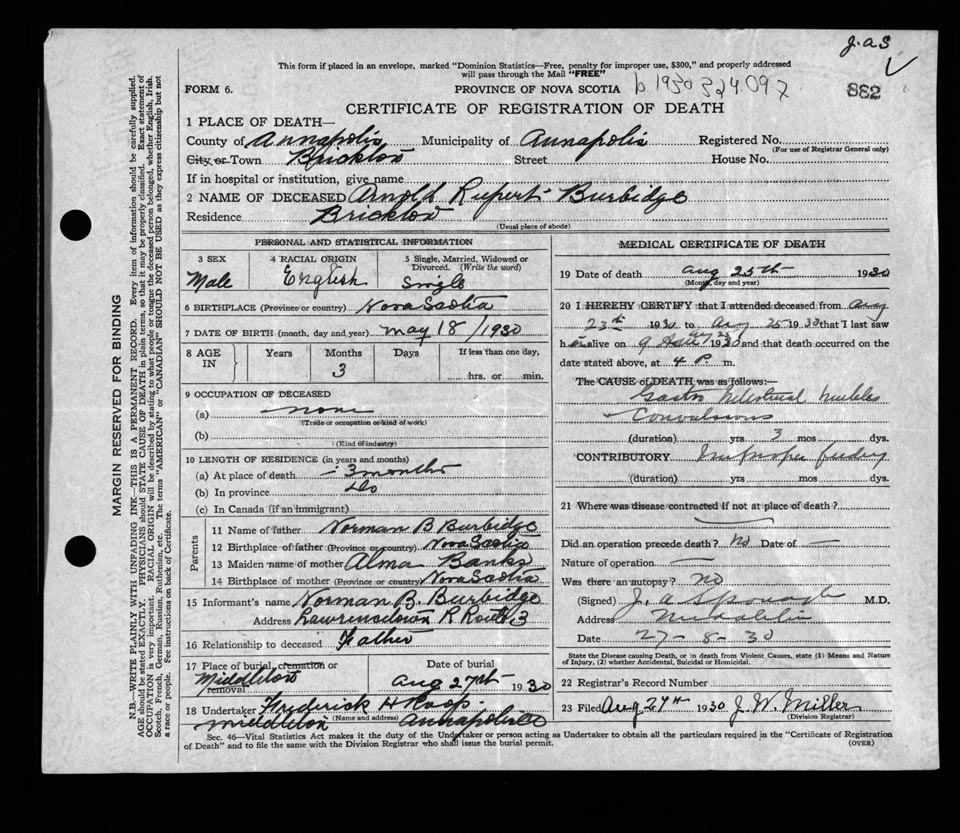 J.a.S
This form if placed in an envelope, marked "Dominion Statistics—Free, penalty for improper use, $300," and properly addressed
will pass through the Mail "FREE"
FORM 6.
PROVINCE OF NOVA SCOTIA
b 1930 324097
882
CERTIFICATE OF REGISTRATION OF DEATH
1 PLACE OF DEATH—
County of Annapolis Municipality of Annapolis Registered No.
(For use of Registrar General only)
City or Town Brickton Street House No.
If in hospital or institution, give name
2 NAME OF DECEASED Arnold Rupert Burbidge
Residence Brickton
(Usual place of abode)
PERSONAL AND STATISTICAL INFORMATION
3 SEX 4 RACIAL ORIGIN 5 Single, Married, Widowed or
Divorced. (Write the word)
Male English Single
6 BIRTHPLACE (Province or country) Nova Scotia
7 DATE OF BIRTH (month, day and year) may 18/1930
8 AGE IN Years Months Days If less than one day,
3 hrs. or min.
9 OCCUPATION OF DECEASED
(a) none
(Trade or occupation or kind of work)
(b)
(Kind of industry)
10 LENGTH OF RESIDENCE (in years and months)
(a) At place of death 3 months
(b) In province do
(c) In Canada (if an immigrant)
Parents
11 Name of father Norman B Burbidge
12 Birthplace of father (Province or country) Nova Scotia
13 Maiden name of mother Alma Banks
14 Birthplace of mother (Province or country) Nova Scotia
15 Informant's name Norman B. Burbidge
Address Lawrencetown R Route 3
16 Relationship to deceased Father
17 Place of burial, cremation or removal Date of burial
Middleton Aug 27th 1930
18 Undertaker Frederick H Roop
(Name and address)
Middleton Annapolis Co
MEDICAL CERTIFICATE OF DEATH
19 Date of death aug 25th 1930
(Month, day and year)
20 I HEREBY CERTIFY that I attended deceased from Aug
23rd 1930 to Aug 25 1930 that I last saw
h alive on 1930 and that death occurred on the
date stated above, at 4 P. m.
The CAUSE of DEATH was as follows:—
Gastro Intestinal
Convulsions
(duration) yrs 3 mos dys.
CONTRIBUTORY Improper feeding
(duration) yrs mos dys.
21 Where was disease contracted if not at place of death?
Did an operation precede death? No Date of —
Nature of operation —
Was there an autopsy? no
(Signed) J. a Sponagle M.D.
Address Middleton
Date 27-8-30
State the Disease causing Death, or in death from Violent Causes, state (1) Means and Nature
of Injury, (2) whether Accidental, Suicidal or Homicidal.
22 Registrar's Record Number
23 Filed Aug 27th 1930 J. W. Miller
(Division Registrar)
Sec. 46—Vital Statistics Act makes it the duty of the Undertaker or person acting as Undertaker to obtain all the particulars required in the "Certificate of Registration
of Death" and to file the same with the Division Registrar who shall issue the burial permit.
(OVER)
MARGIN RESERVED FOR BINDING
N.B.—WRITE PLAINLY WITH UNFADING INK—THIS IS A PERMANENT RECORD. Every item of information should be carefully supplied.
AGE should be stated EXACTLY. PHYSICIANS should STATE CAUSE OF DEATH in plain terms, so that it may be properly classified. Exact statement of
OCCUPATION is very important. RACIAL ORIGIN will be described by stating to what people or tongue the deceased person belonged, whether English, Irish,
Scotch, French, German, Russian, Ruthenian, etc. The terms "AMERICAN" or "CANADIAN" SHOULD NOT BE USED as they express citizenship but not
a race or people. See instructions on back of Certificate.